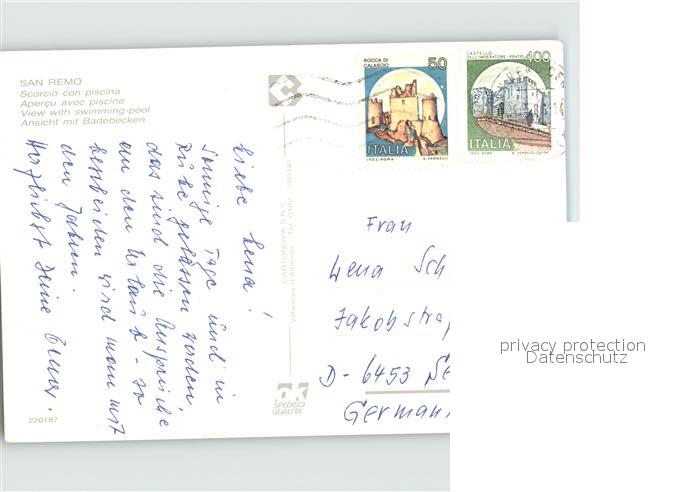 SAN REMO
Scorcio con piscina
Aperçu avec piscine
View with swimming-pool
Ansicht mit Badebecken
Liebe Lena!
Sonnige Tage und in
Ruhe gelassen werden,
das sind die Ansprüche
an den Urlaub - so
bescheiden wird man mit
den Jahren.
Herzlichst Deine
220187
CARTONOVA S.N.C.
Villanova d'Albenga - Tel. 0182
ok
SPEDISCI
QUALITÀ
ROCCA DI
CALASCIO
50
ITALIA
I.P.Z.S. - ROMA E. VANGELLI
CASTELLO
DELL'IMPERATORE - PRATO
100
ITALIA
I.P.Z.S. - ROMA
Frau
Lena Sch
Jakobstraß
D-6453 Se
German
privacy protection
Datenschutz